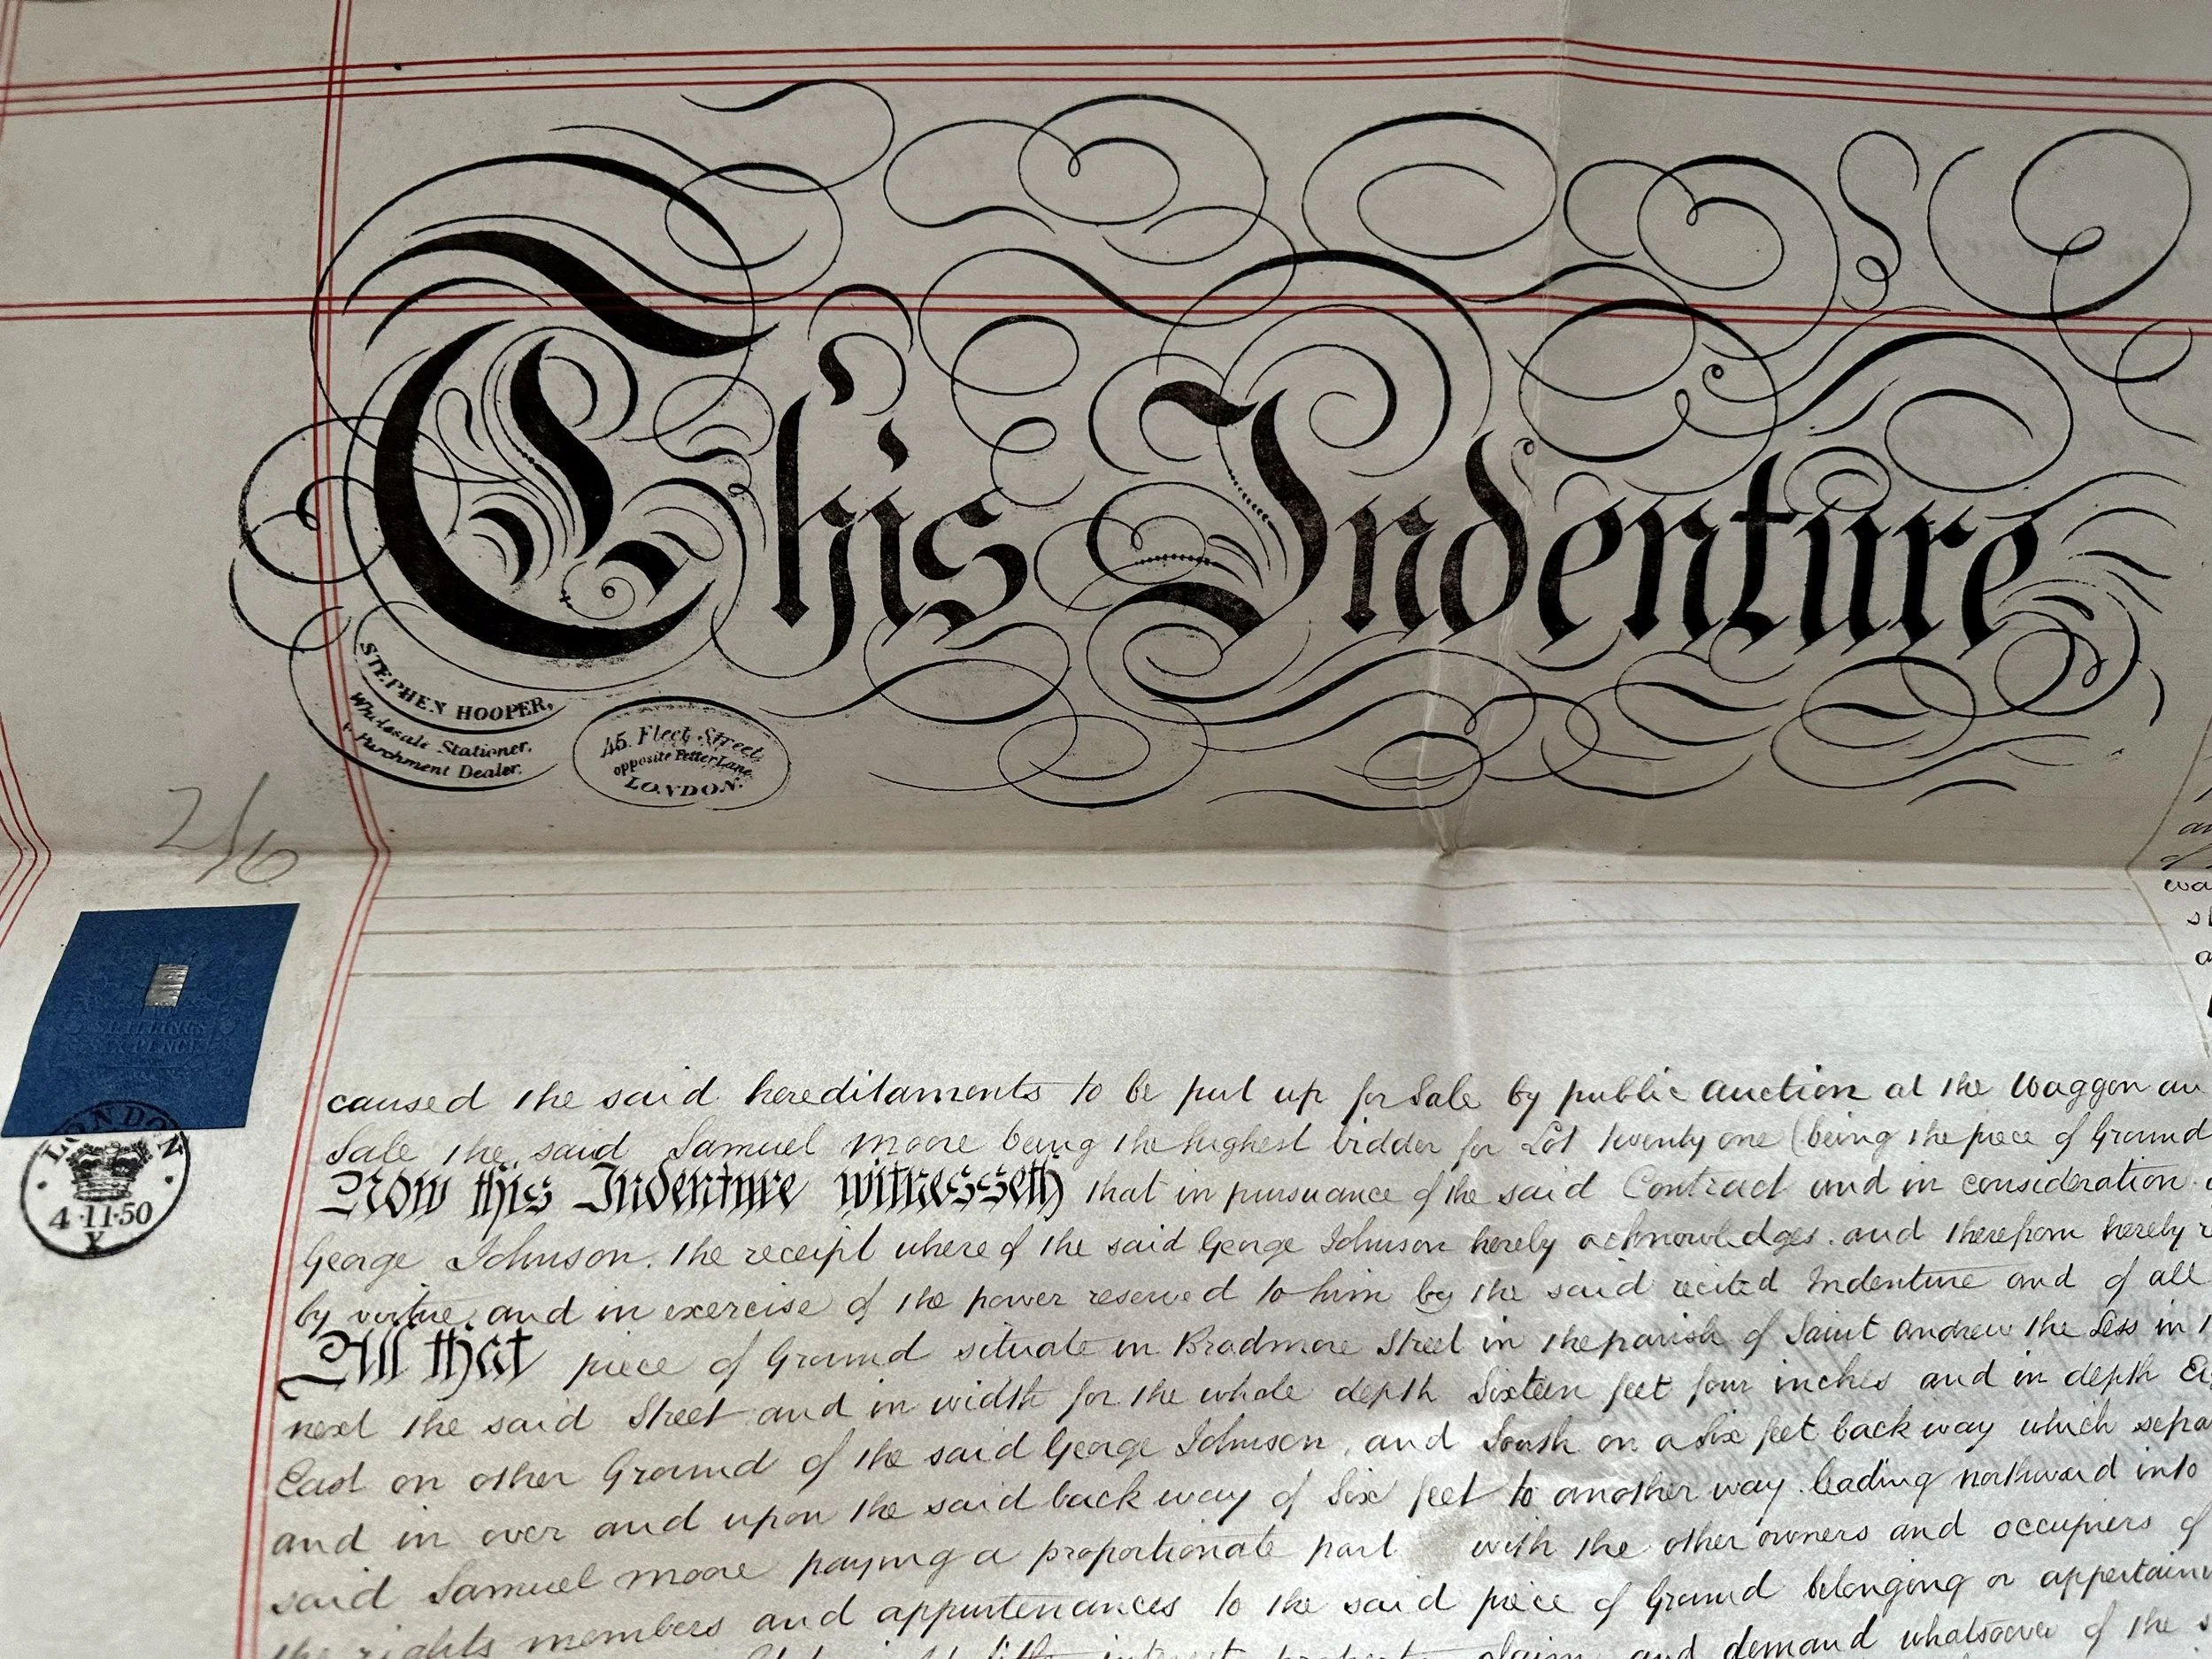 This Indenture
STEPHEN HOOPER,
Wholesale Stationer,
& Parchment Dealer.
45. Fleet Street,
opposite Fetter Lane,
LONDON.
2/6
SHILLINGS
SIX PENCE
LONDON
4·11·50
X
caused the said hereditaments to be put up for Sale by public auction at the Waggon an
Sale the said Samuel Moore being the highest bidder for Lot twenty one (being the piece of Ground
Now this Indenture witnesseth that in pursuance of the said Contract and in consideration
George Johnson, the receipt where of the said George Johnson hereby acknowledges and therefrom hereby
by virtue and in exercise of the power reserved to him by the said recited Indenture and of all
All that piece of Ground situate in Bradmore Street in the parish of Saint Andrew the Less in
next the said Street and in width for the whole depth Sixteen feet four inches and in depth
East on other Ground of the said George Johnson, and South on a Six feet back way which sepa
and in over and upon the said back way of Six feet to another way leading northward into
said Samuel Moore paying a proportionate part with the other owners and occupiers of
the rights members and appurtenances to the said piece of Ground belonging or appertain
interest property claim and demand whatsoever of the